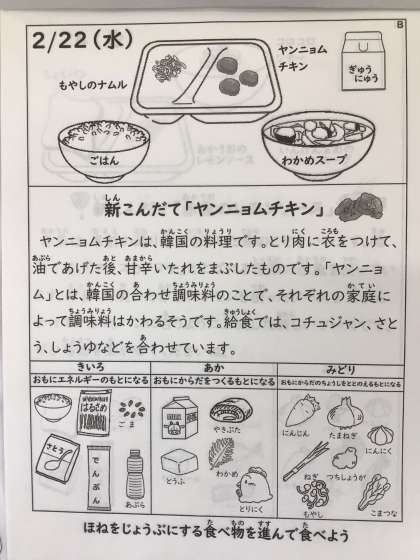 B
2/22(水)
ヤンニョム
チキン
ぎゅう
にゅう
もやしのナムル
ごはん
わかめスープ
新こんだて「ヤンニョムチキン」
ヤンニョムチキンは、韓国の料理です。とり肉に衣をつけて、
油であげた後、甘辛いたれをまぶしたものです。「ヤンニョ
ム」とは、韓国の合わせ調味料のことで、それぞれの家庭に
よって調味料はかわるそうです。給食では、コチュジャン、さと
う、しょうゆなどを合わせています。
きいろ
おもにエネルギーのもとになる
はるさめ
ごま
さとう
でんぷん
あぶら
あか
おもにからだをつくるもとになる
やきぶた
とうふ
わかめ
とりにく
みどり
おもにからだのちょうしをととのえるもとになる
にんじん
たまねぎ
にんにく
ねぎ
つちしょうが
もやし
こまつな
ほねをじょうぶにする食べ物を進んで食べよう